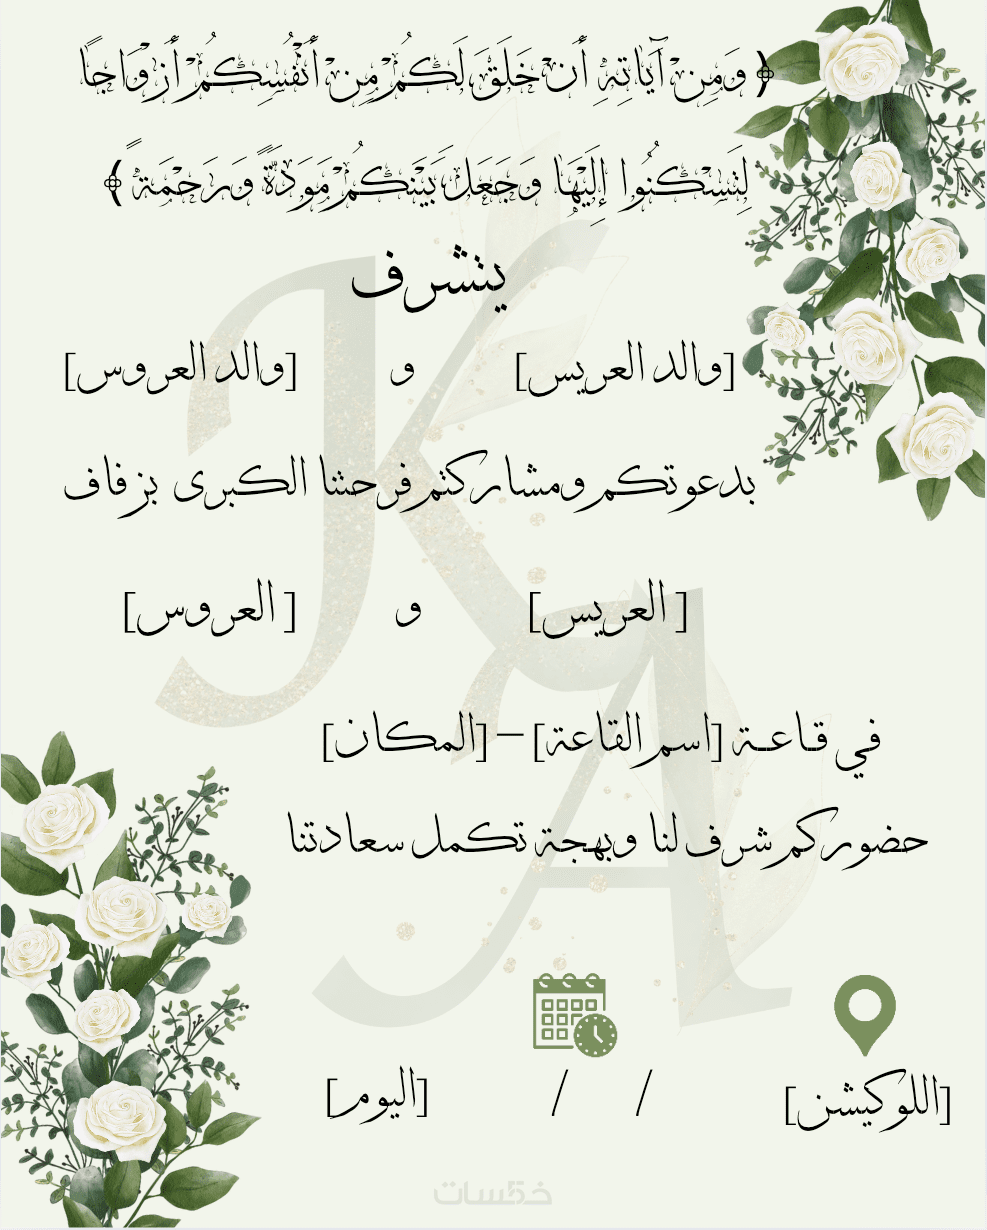 ﴿ وَمِنْ آيَاتِهِ أَنْ خَلَقَ لَكُمْ مِنْ أَنْفُسِكُمْ أَزْوَاجًا
لِتَسْكُنُوا إِلَيْهَا وَجَعَلَ بَيْنَكُمْ مَوَدَّةً وَرَحْمَةً ﴾
يتشرف
[والد العريس] و [والد العروس]
بدعوتكم ومشاركتم فرحتنا الكبرى بزفاف
[ العريس] و [ العروس]
في قاعة [اسم القاعة] – [المكان]
حضوركم شرف لنا وبهجة تكمل سعادتنا
[اللوكيشن] / / [اليوم]
K
A
خمسات